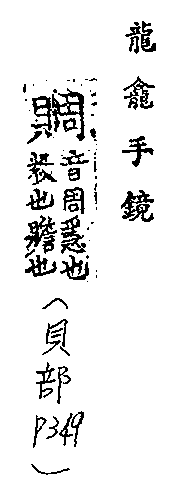 龍龕手鏡
賙
音周也
救也贍也
(貝部
P349)